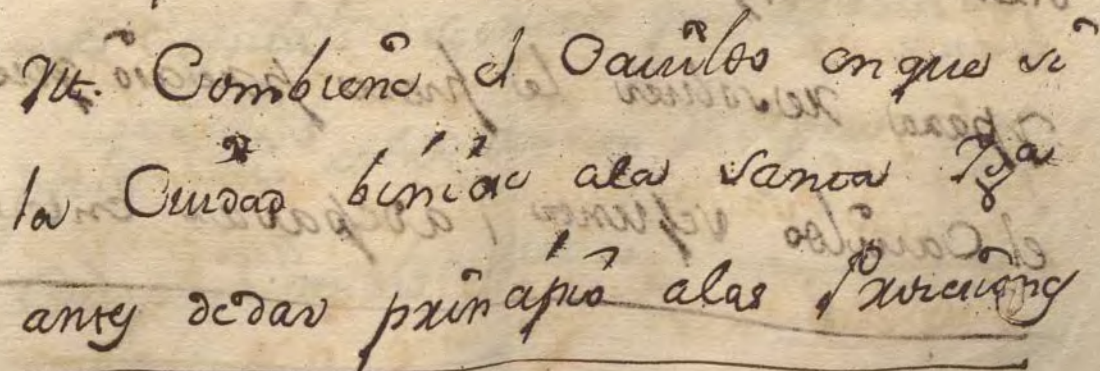 Itt. Combiene el Cauildo en que si
la Ciudad biniác ala santa Yga
antes dedar prinçipio alas Prosecioñes